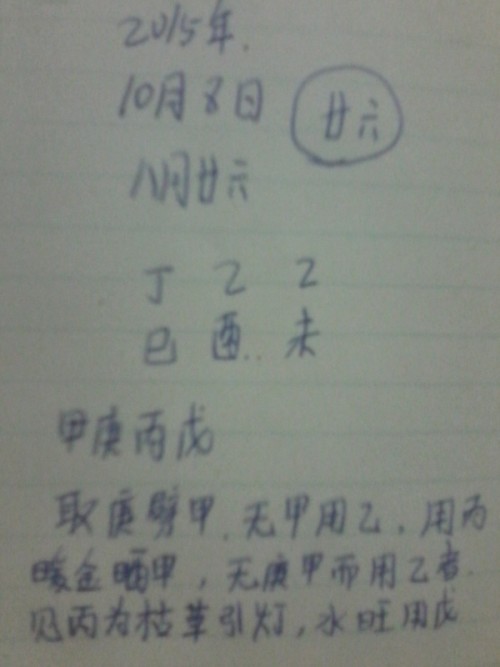 2015年.
10月8日 廿六
八月廿六
丁 乙 乙
巳 酉.. 未
甲庚丙戊
取庚劈甲、无甲用乙、用丙
暖金晒甲，无庚甲而用乙者.
见丙为枯草引灯，水旺用戊